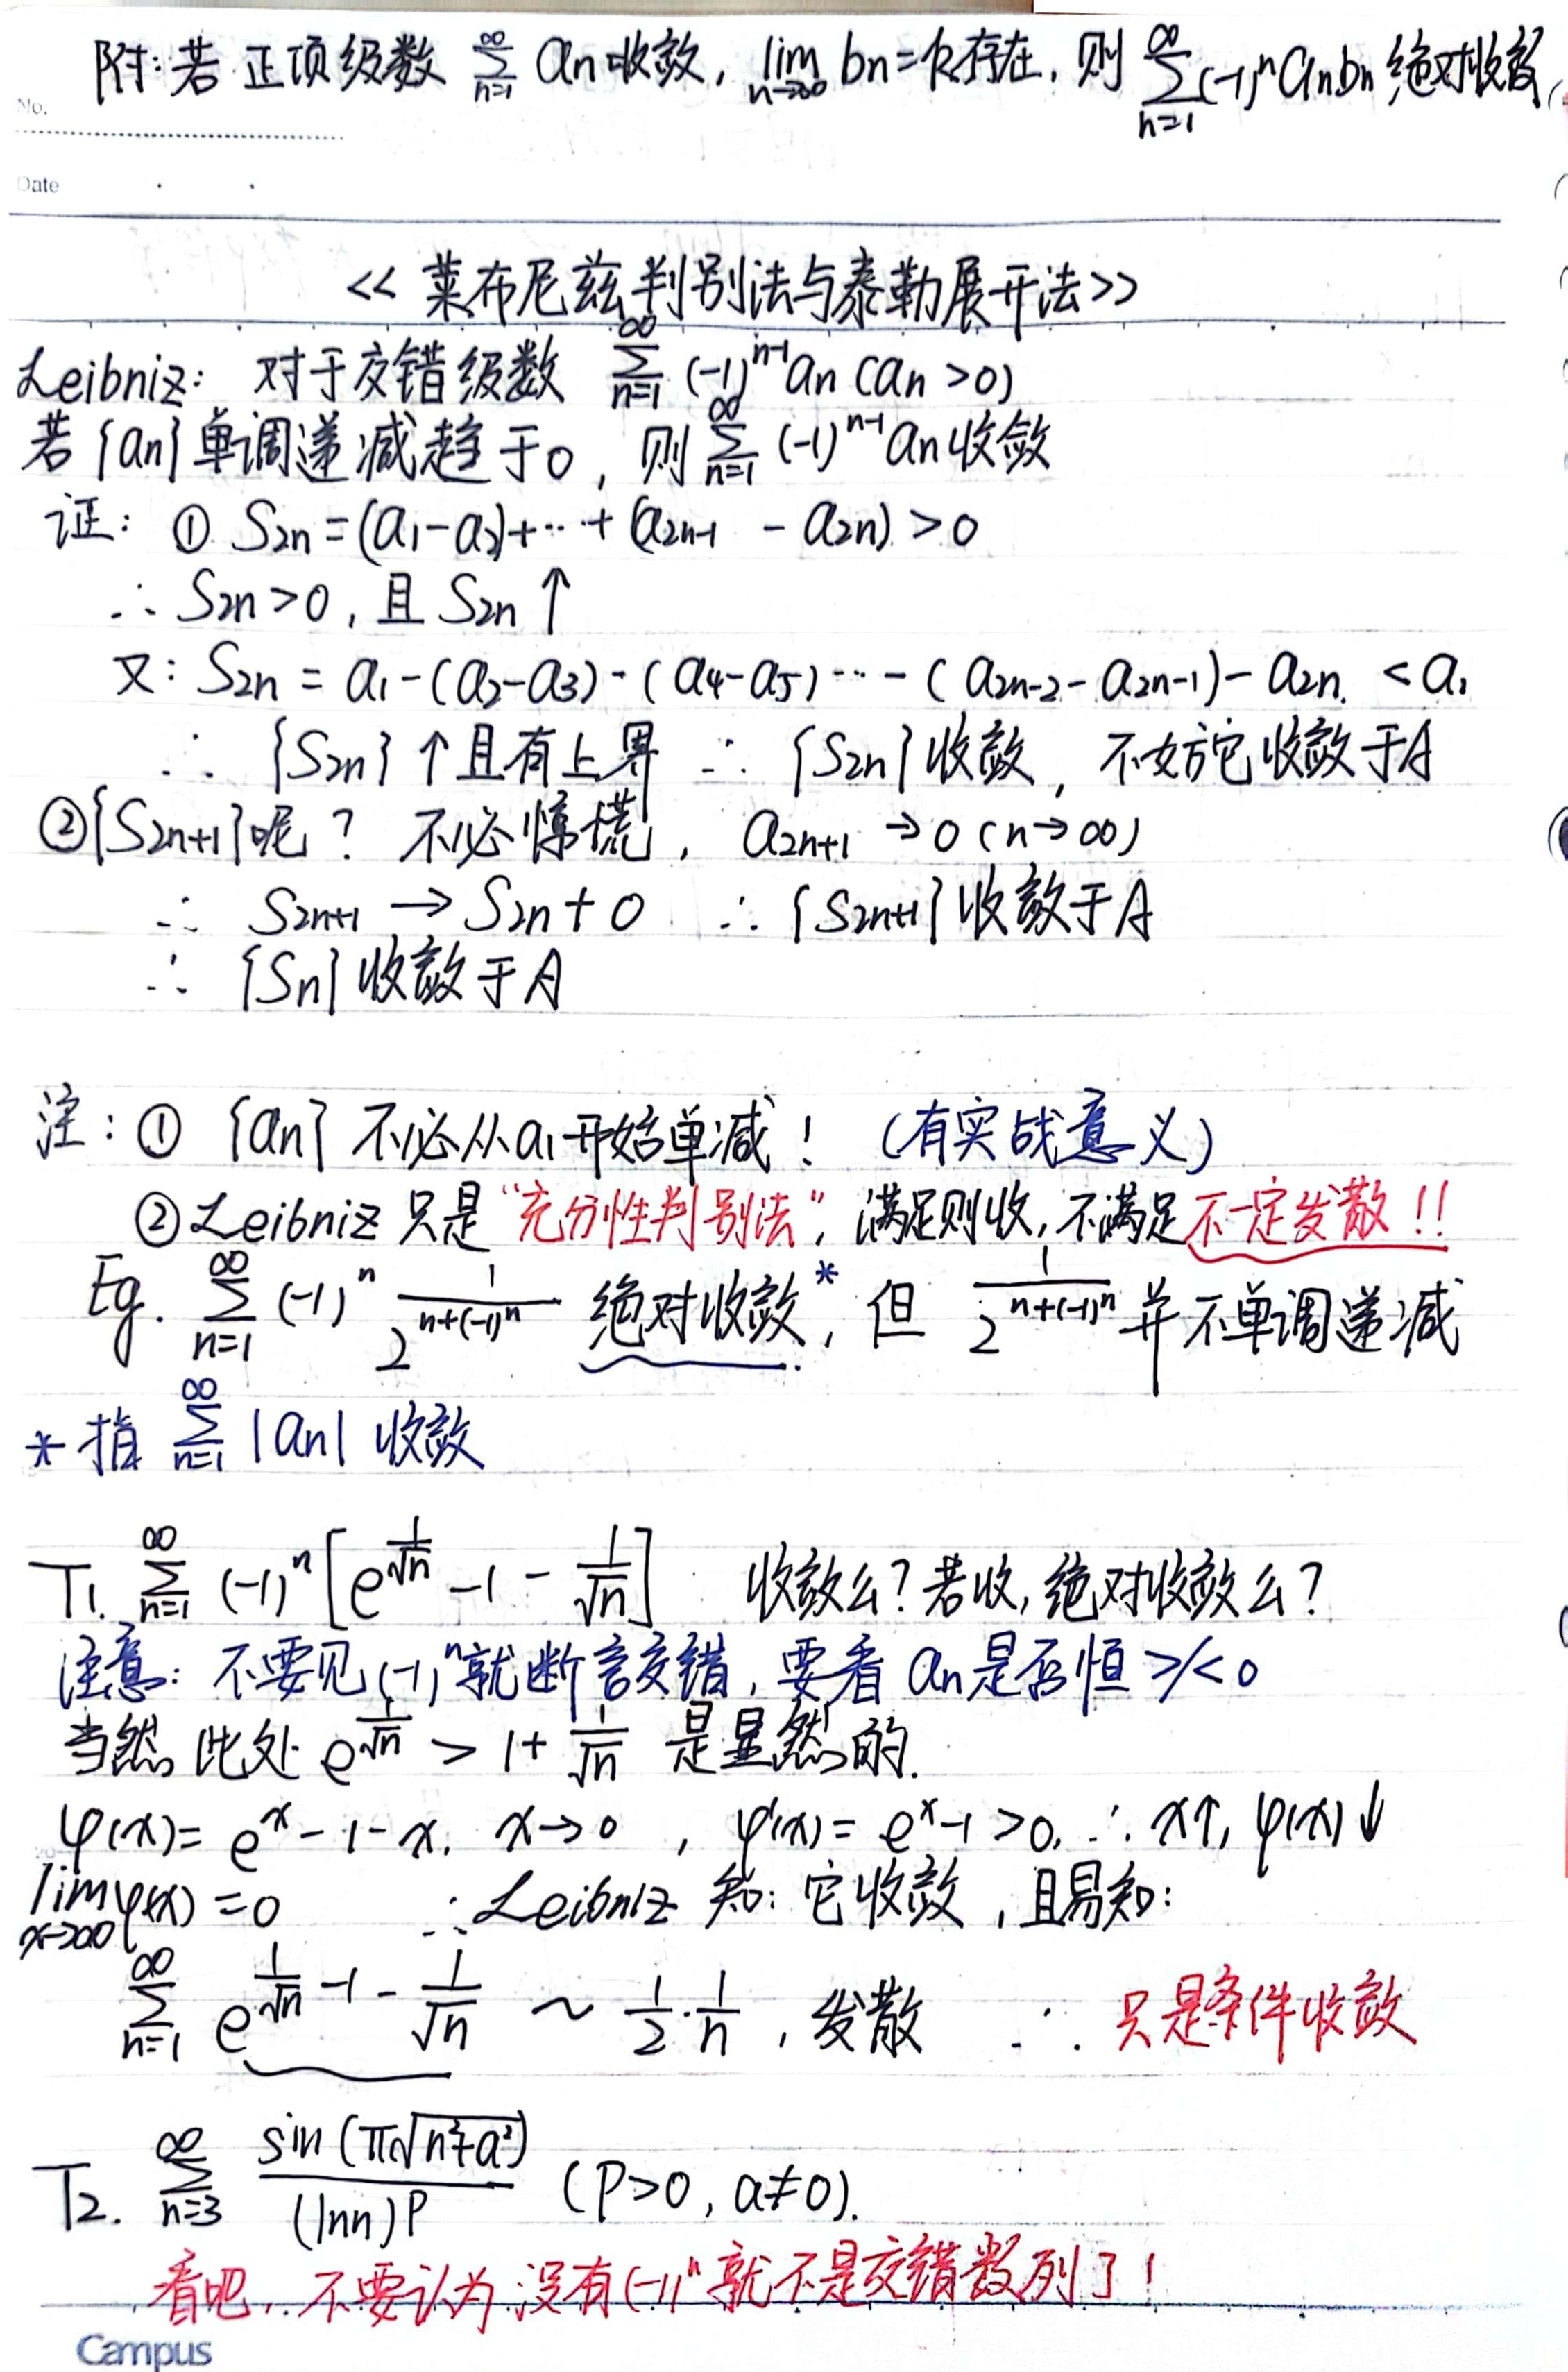 附:若正项级数 ∑_{n=1}^{∞} an收敛, lim_{n→∞} bn=k存在, 则 ∑_{n=1}^{∞} (-1)^n an bn 绝对收敛
No.
Date
<< 莱布尼兹判别法与泰勒展开法>>
Leibniz: 对于交错级数 ∑_{n=1}^{∞} (-1)^{n-1} an (an >0)
若 {an} 单调递减趋于0, 则 ∑_{n=1}^{∞} (-1)^{n-1} an 收敛
证: ① S2n =(a1-a2)+…+ (a2n-1 - a2n) >0
∴ S2n >0, 且 S2n ↑
又: S2n = a1-(a2-a3)-(a4-a5)…-(a2n-2-a2n-1)-a2n < a1
∴ {S2n}↑且有上界 ∴ {S2n}收敛, 不妨它收敛于A
②{S2n+1}呢? 不必惊慌, a2n+1 →0 (n→∞)
∴ S2n+1 → S2n + 0 ∴ {S2n+1}收敛于A
∴ {Sn}收敛于A
注: ① {an} 不必从a1开始单减! (有实战意义)
②Leibniz 只是“充分性判别法”, 满足则收, 不满足不一定发散!!
Eg. ∑_{n=1}^{∞} (-1)^n 1/2^{n+(-1)^n} 绝对收敛*, 但 1/2^{n+(-1)^n} 并不单调递减
* 指 ∑_{n=1}^{∞} |an| 收敛
T1. ∑_{n=1}^{∞} (-1)^n [e^{1/√n} -1 - 1/√n] 收敛么? 若收, 绝对收敛么?
注意: 不要见(-1)^n就断言交错, 要看 an是否恒 >/< 0
当然此处 e^{1/√n} > 1+ 1/√n 是显然的.
φ(x)= e^x-1-x, x→0, φ'(x)= e^x-1 >0, ∴ x↑, φ(x)↓
lim_{x→∞} φ(x) =0 ∴Leibniz 知: 它收敛, 且易知:
∑_{n=1}^{∞} e^{1/√n} -1- 1/√n ~ 1/2·1/n, 发散 ∴ 只是条件收敛
T2. ∑_{n=3}^{∞} sin(π√n²+a²)/(lnn)^p (P>0, a≠0).
看吧, 不要认为没有(-1)^n就不是交错数列了!
Campus